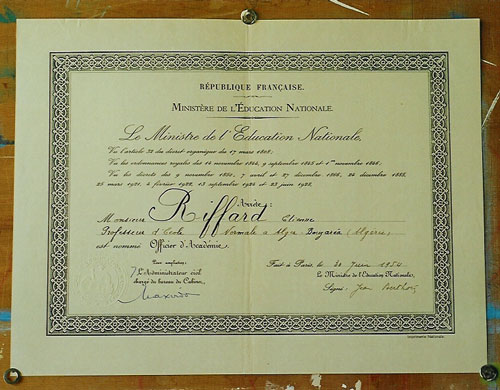 RÉPUBLIQUE FRANÇAISE.
MINISTÈRE DE L'ÉDUCATION NATIONALE.
Le Ministre de l'Éducation Nationale,
Vu l'article 32 du décret organique du 17 mars 1808;
Vu les ordonnances royales des 14 novembre 1844, 9 septembre 1845 et 1er novembre 1846;
Vu les décrets des 9 novembre 1850, 7 avril et 27 décembre 1866, 24 décembre 1885,
25 mars 1921, 4 février 1922, 13 septembre 1924 et 23 juin 1928,
Arrête:
Monsieur Riffard Etienne
Professeur d'Ecole Normale à Alger Bouzaréa (Algérie)
est nommé Officier d'Académie.
Pour ampliation:
L'Administrateur civil
chargé du bureau du Cabinet,
Fait à Paris le 30 Juin 1954
Le Ministre de l'Éducation Nationale,
Signé: Jean Berthoin
Imprimerie Nationale.